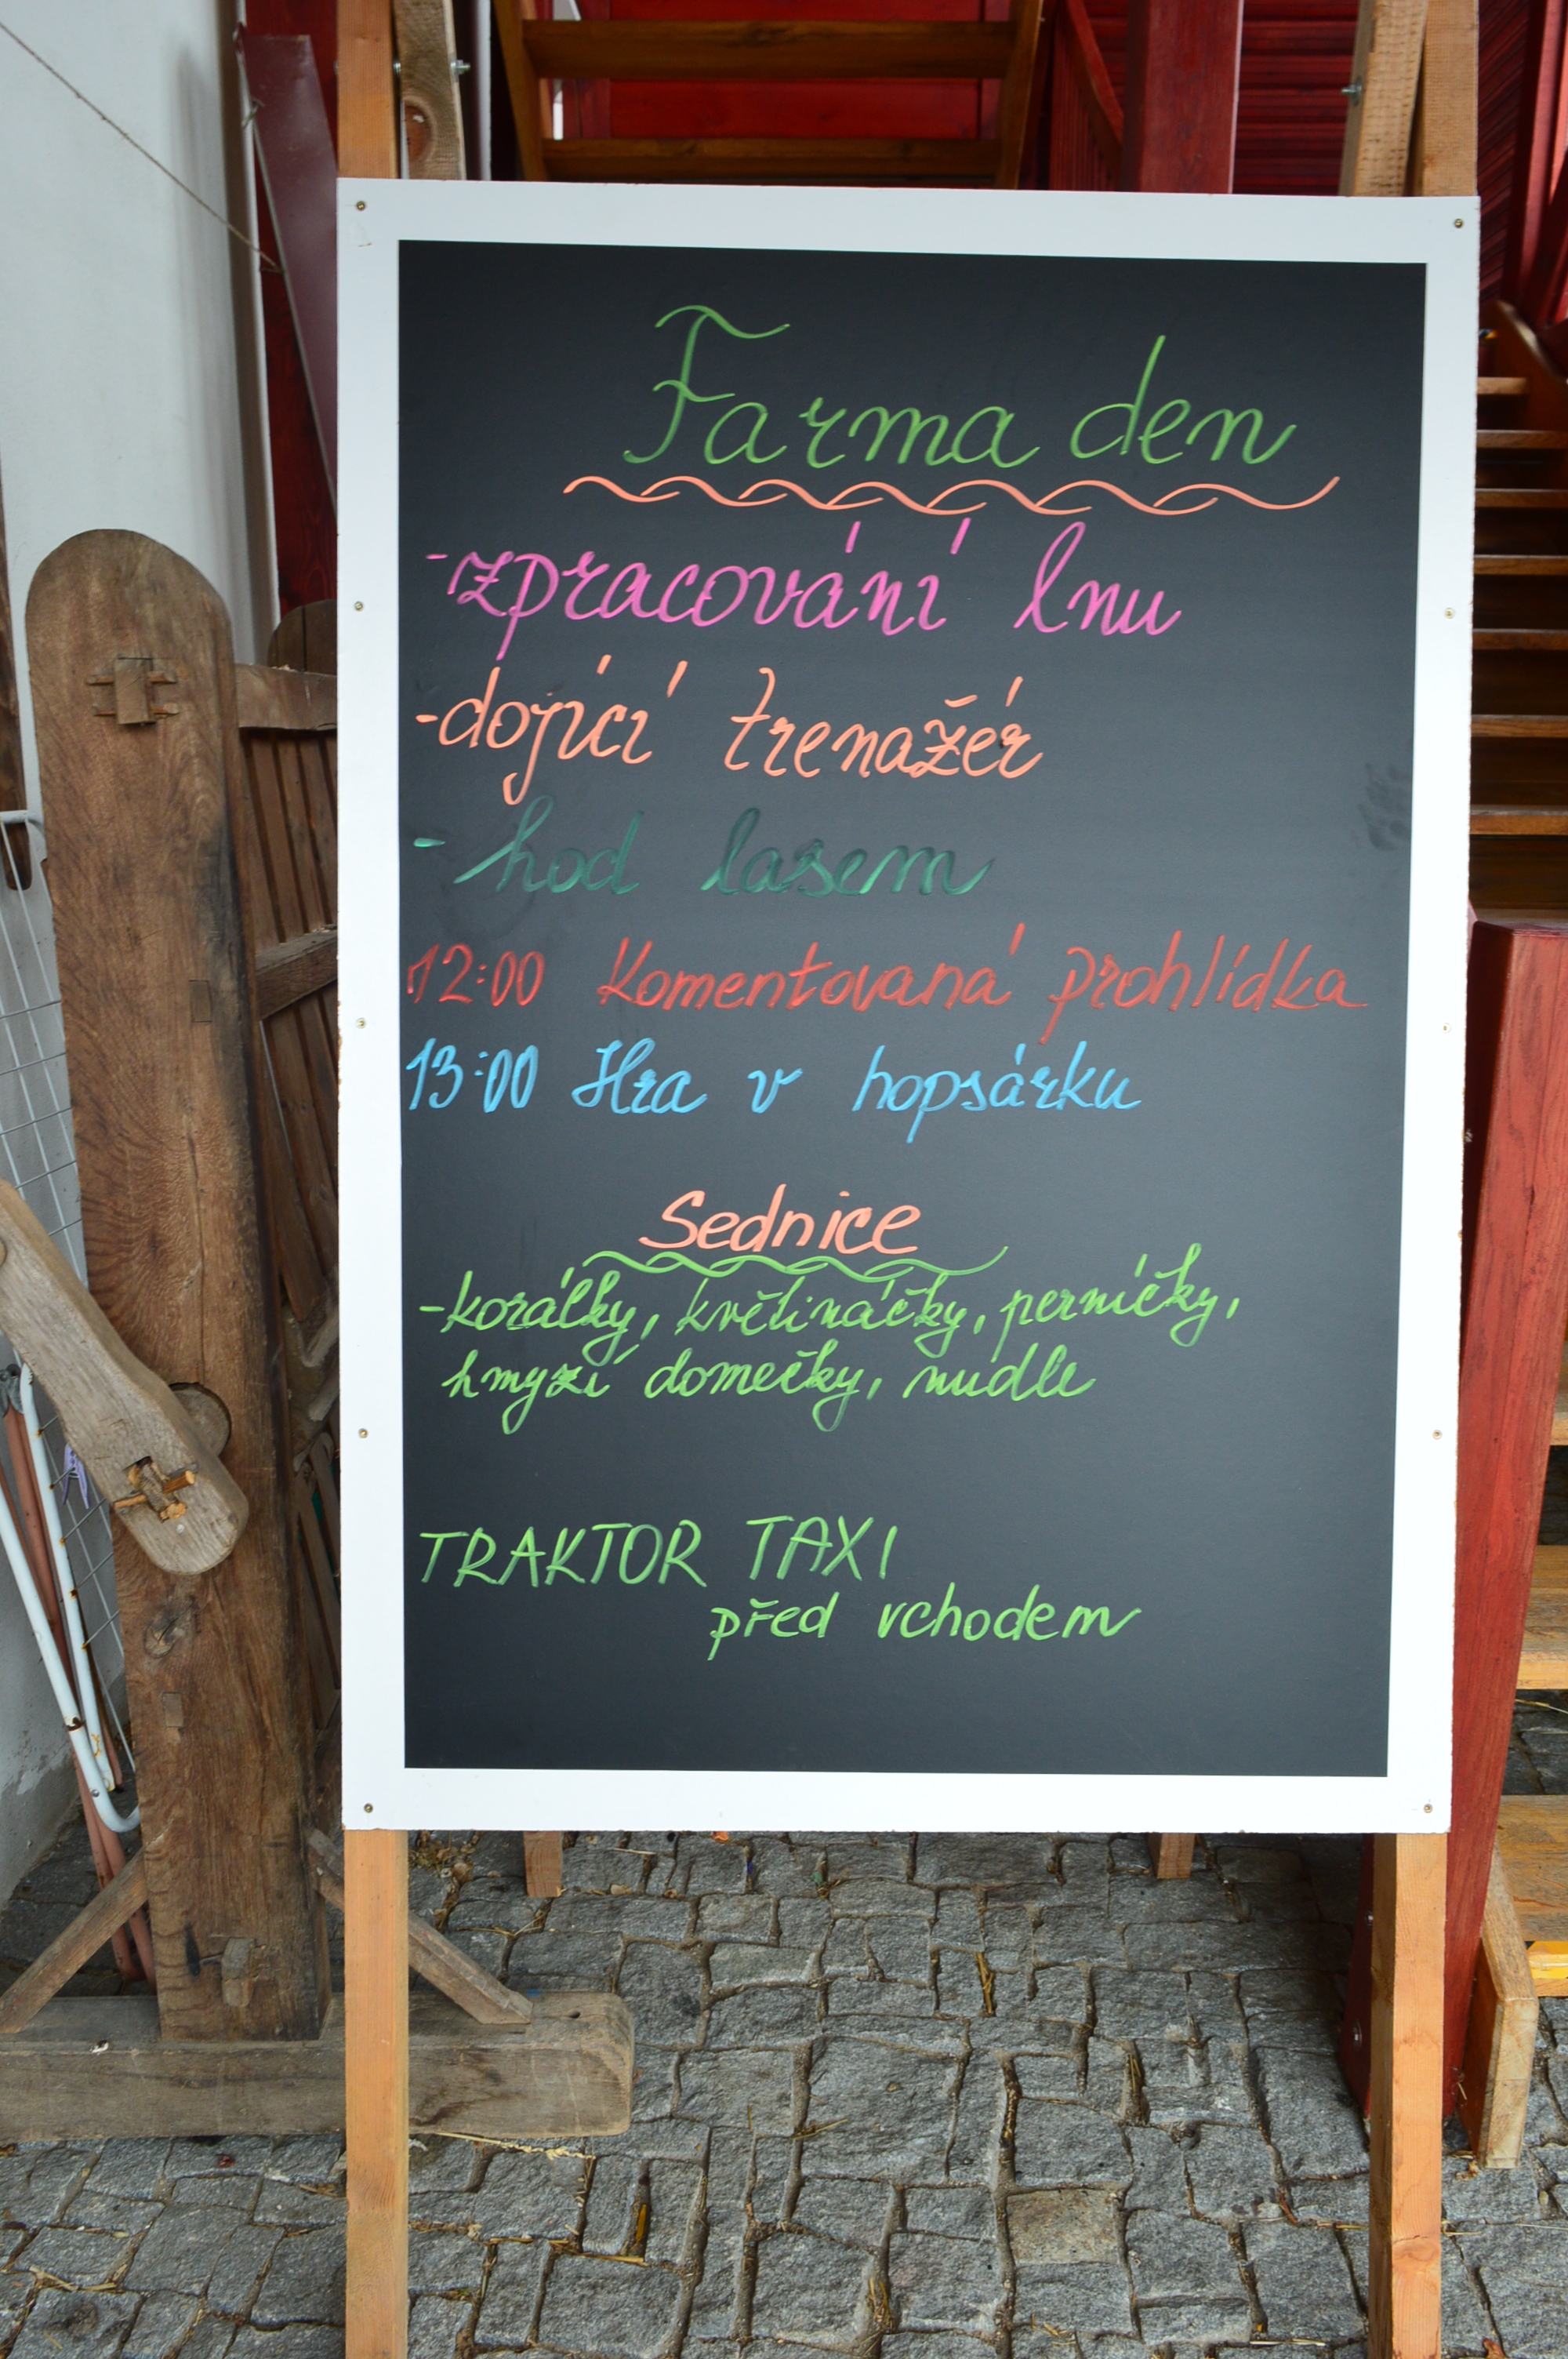 Farma den
-zpracování lnu
-dojící trenažér
- hod lasem
12:00 Komentovaná prohlídka
13:00 Hra v hopsárku
Sednice
-korálky, květináčky, perníčky,
hmyzí domečky, nudle
TRAKTOR TAXI
před vchodem